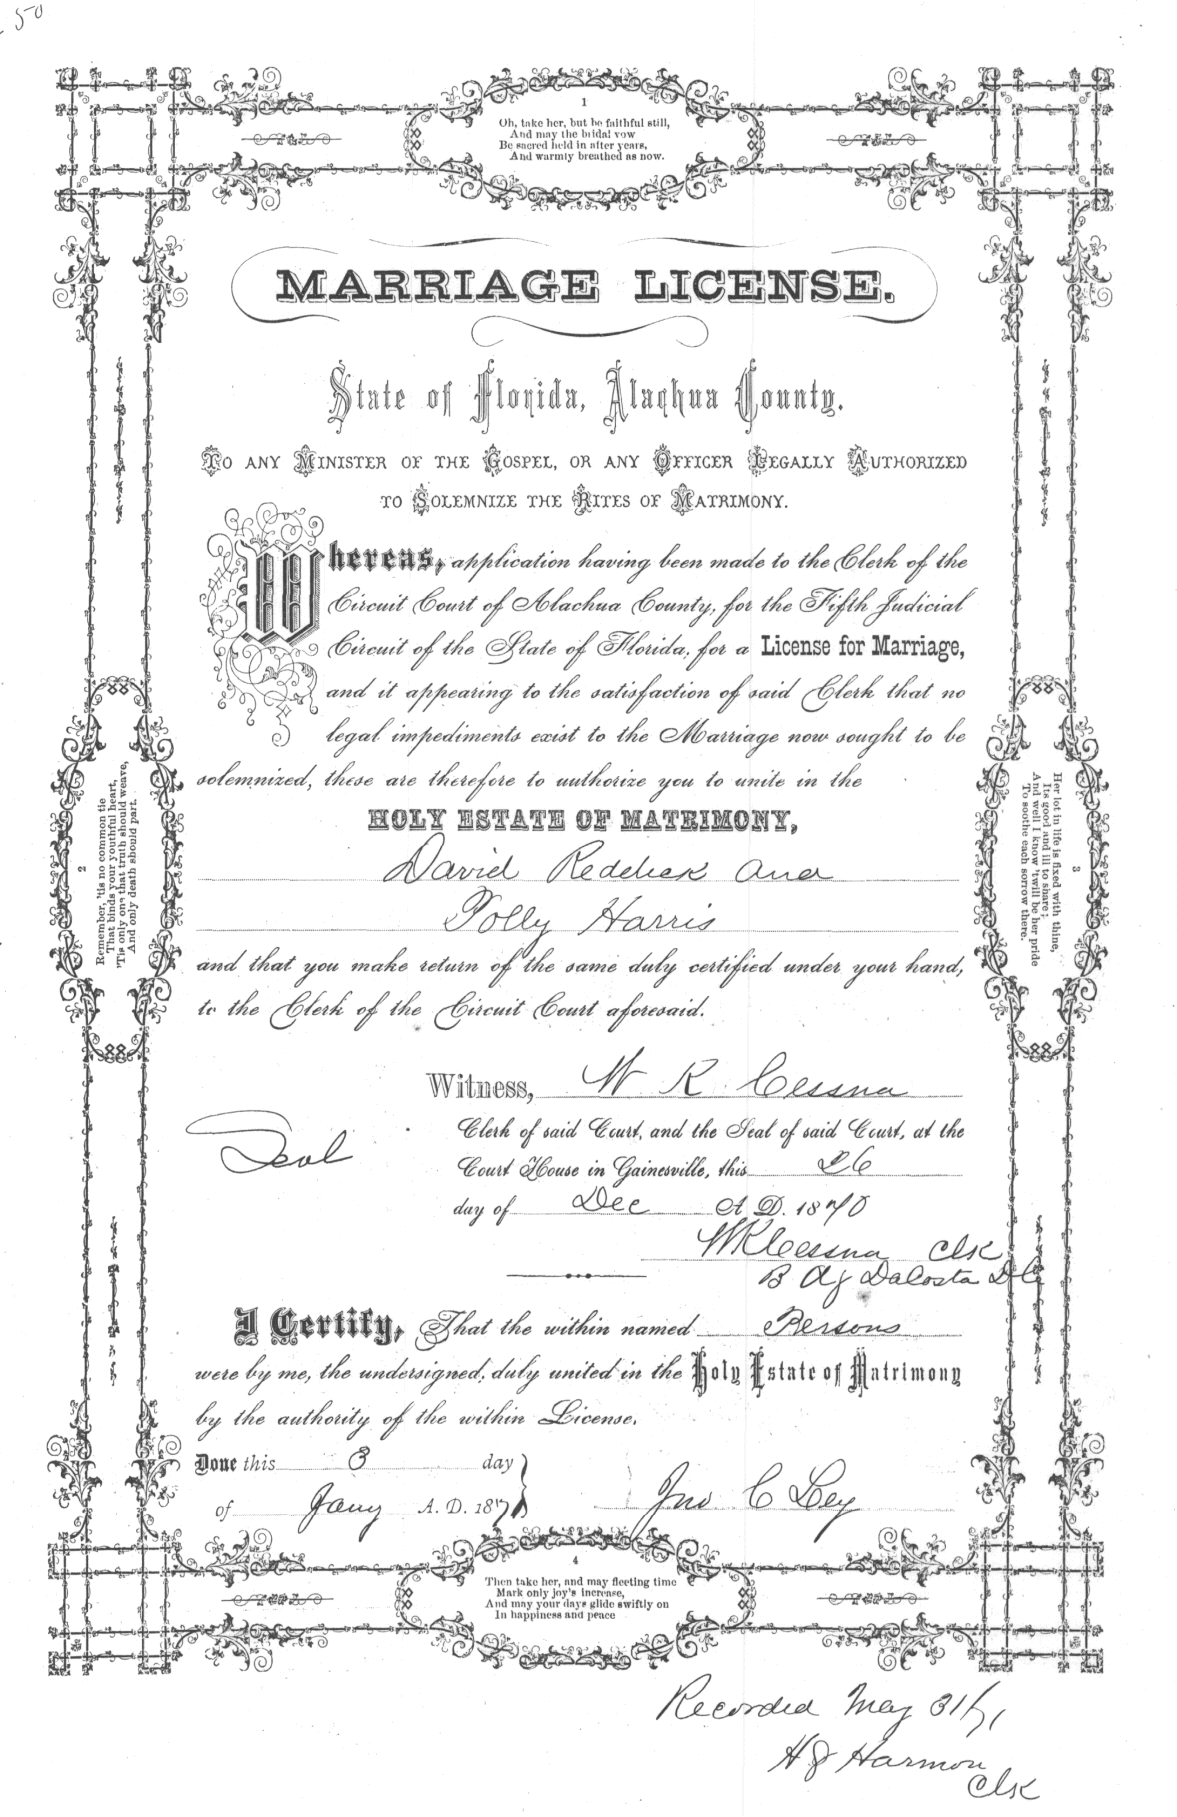 50
1
Oh, take her, but be faithful still,
And may the bridal vow
Be sacred held in after years,
And warmly breathed as now.
MARRIAGE LICENSE.
State of Florida, Alachua County.
TO ANY MINISTER OF THE GOSPEL, OR ANY OFFICER LEGALLY AUTHORIZED
TO SOLEMNIZE THE RITES OF MATRIMONY.
Whereas, application having been made to the Clerk of the
Circuit Court of Alachua County, for the Fifth Judicial
Circuit of the State of Florida, for a License for Marriage,
and it appearing to the satisfaction of said Clerk that no
legal impediments exist to the Marriage now sought to be
solemnized, these are therefore to authorize you to unite in the
HOLY ESTATE OF MATRIMONY,
David Reddick and
Polly Harris
and that you make return of the same duly certified under your hand,
to the Clerk of the Circuit Court aforesaid.
2
Remember, 'tis no common tie
That binds your youthful heart,
'Tis only one that truth should weave,
And only death should part.
3
Her lot in life is fixed with thine,
Its good and ill to share;
And well I know 'twill be her pride
To soothe each sorrow there.
Witness, W K Cessna
Clerk of said Court, and the Seal of said Court, at the
Seal
Court House in Gainesville, this 26
day of Dec A D. 1870
WKCessna Clk
B A J DaCosta
I Certify, That the within named Persons
were by me, the undersigned, duly united in the Holy Estate of Matrimony
by the authority of the within License.
Done this 3 day
of Jany A. D. 1871
Jno C Ley
4
Then take her, and may fleeting time
Mark only joy's increase,
And may your days glide swiftly on
In happiness and peace
Recorded May 31/71
H J Harmon
Clk